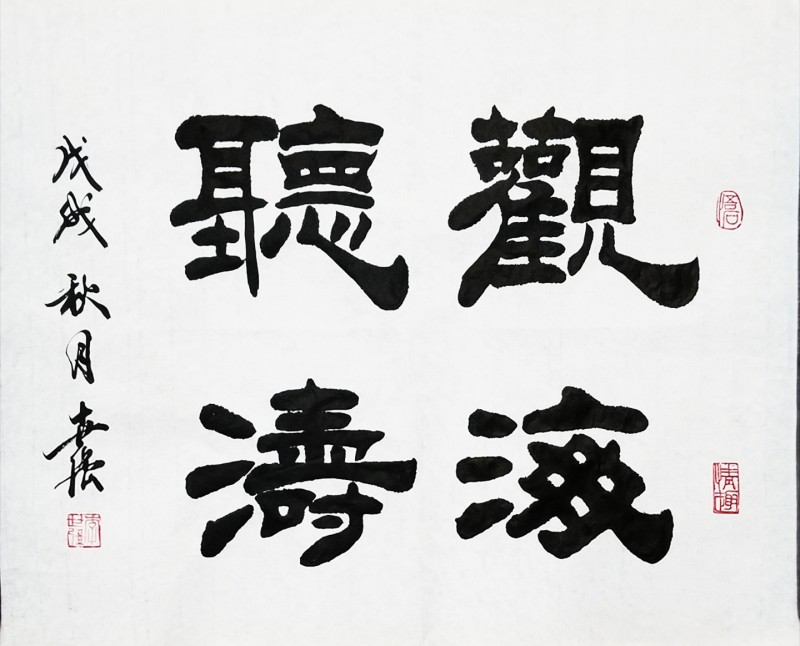 觀海
聽濤
戊戌秋月世强